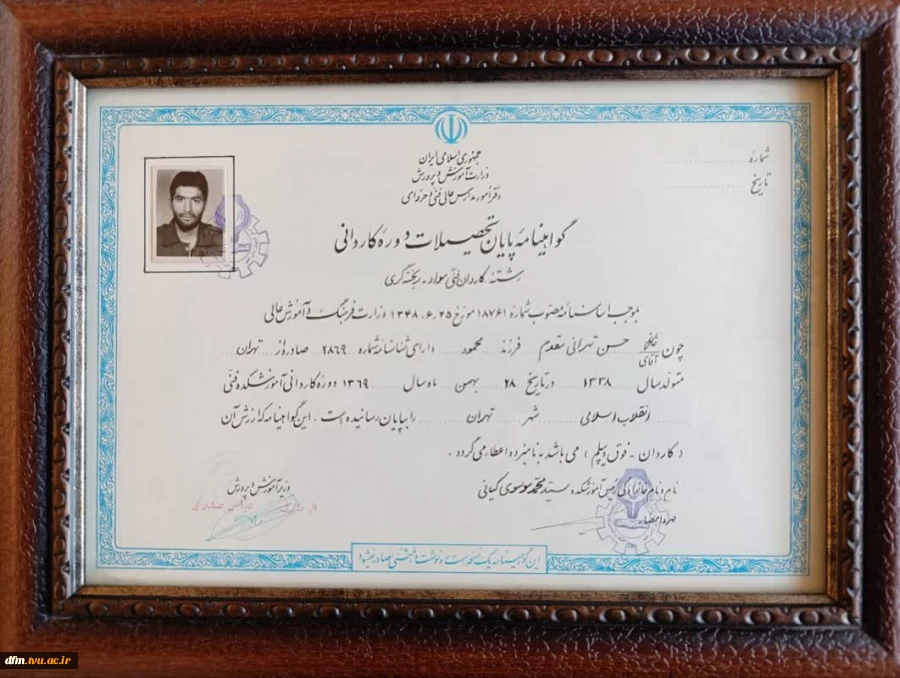 جمهوری اسلامی ایران
وزارت آموزش و پرورش
دفتر امور مدارس عالی فنی و حرفه‌ای
شماره
تاریخ
گواهینامه پایان تحصیلات دوره کاردانی
رشته: کاردان فنی مواد - ریخته گری
بموجب اساسنامه مصوب شماره ۱۸۷۶۱ مورخ ۱۳۴۸٫۶٫۲۵ وزارت فرهنگ و آموزش عالی
چون خانم آقای حسن تهرانی مقدم فرزند محمود دارای شناسنامه شماره ۲۸۶۹ صادره از تهران
متولد سال ۱۳۳۸ در تاریخ ۲۸ بهمن ماه سال ۱۳۶۹ دوره کاردانی آموزشکده فنی
انقلاب اسلامی شهر تهران را بپایان رسانیده است . این گواهینامه که ارزش آن
( کاردان - فوق دیپلم ) می باشد به نامبرده اعطا می گردد .
نام و نام خانوادگی رئیس آموزشکده سید محمد موسوی کیانی
مهر و امضاء
وزیر آموزش و پرورش
از طرف عباس صدری
این گواهینامه یک نسخه است و نوشت المثنی صادر نمیشود
dfm.tvu.ac.ir